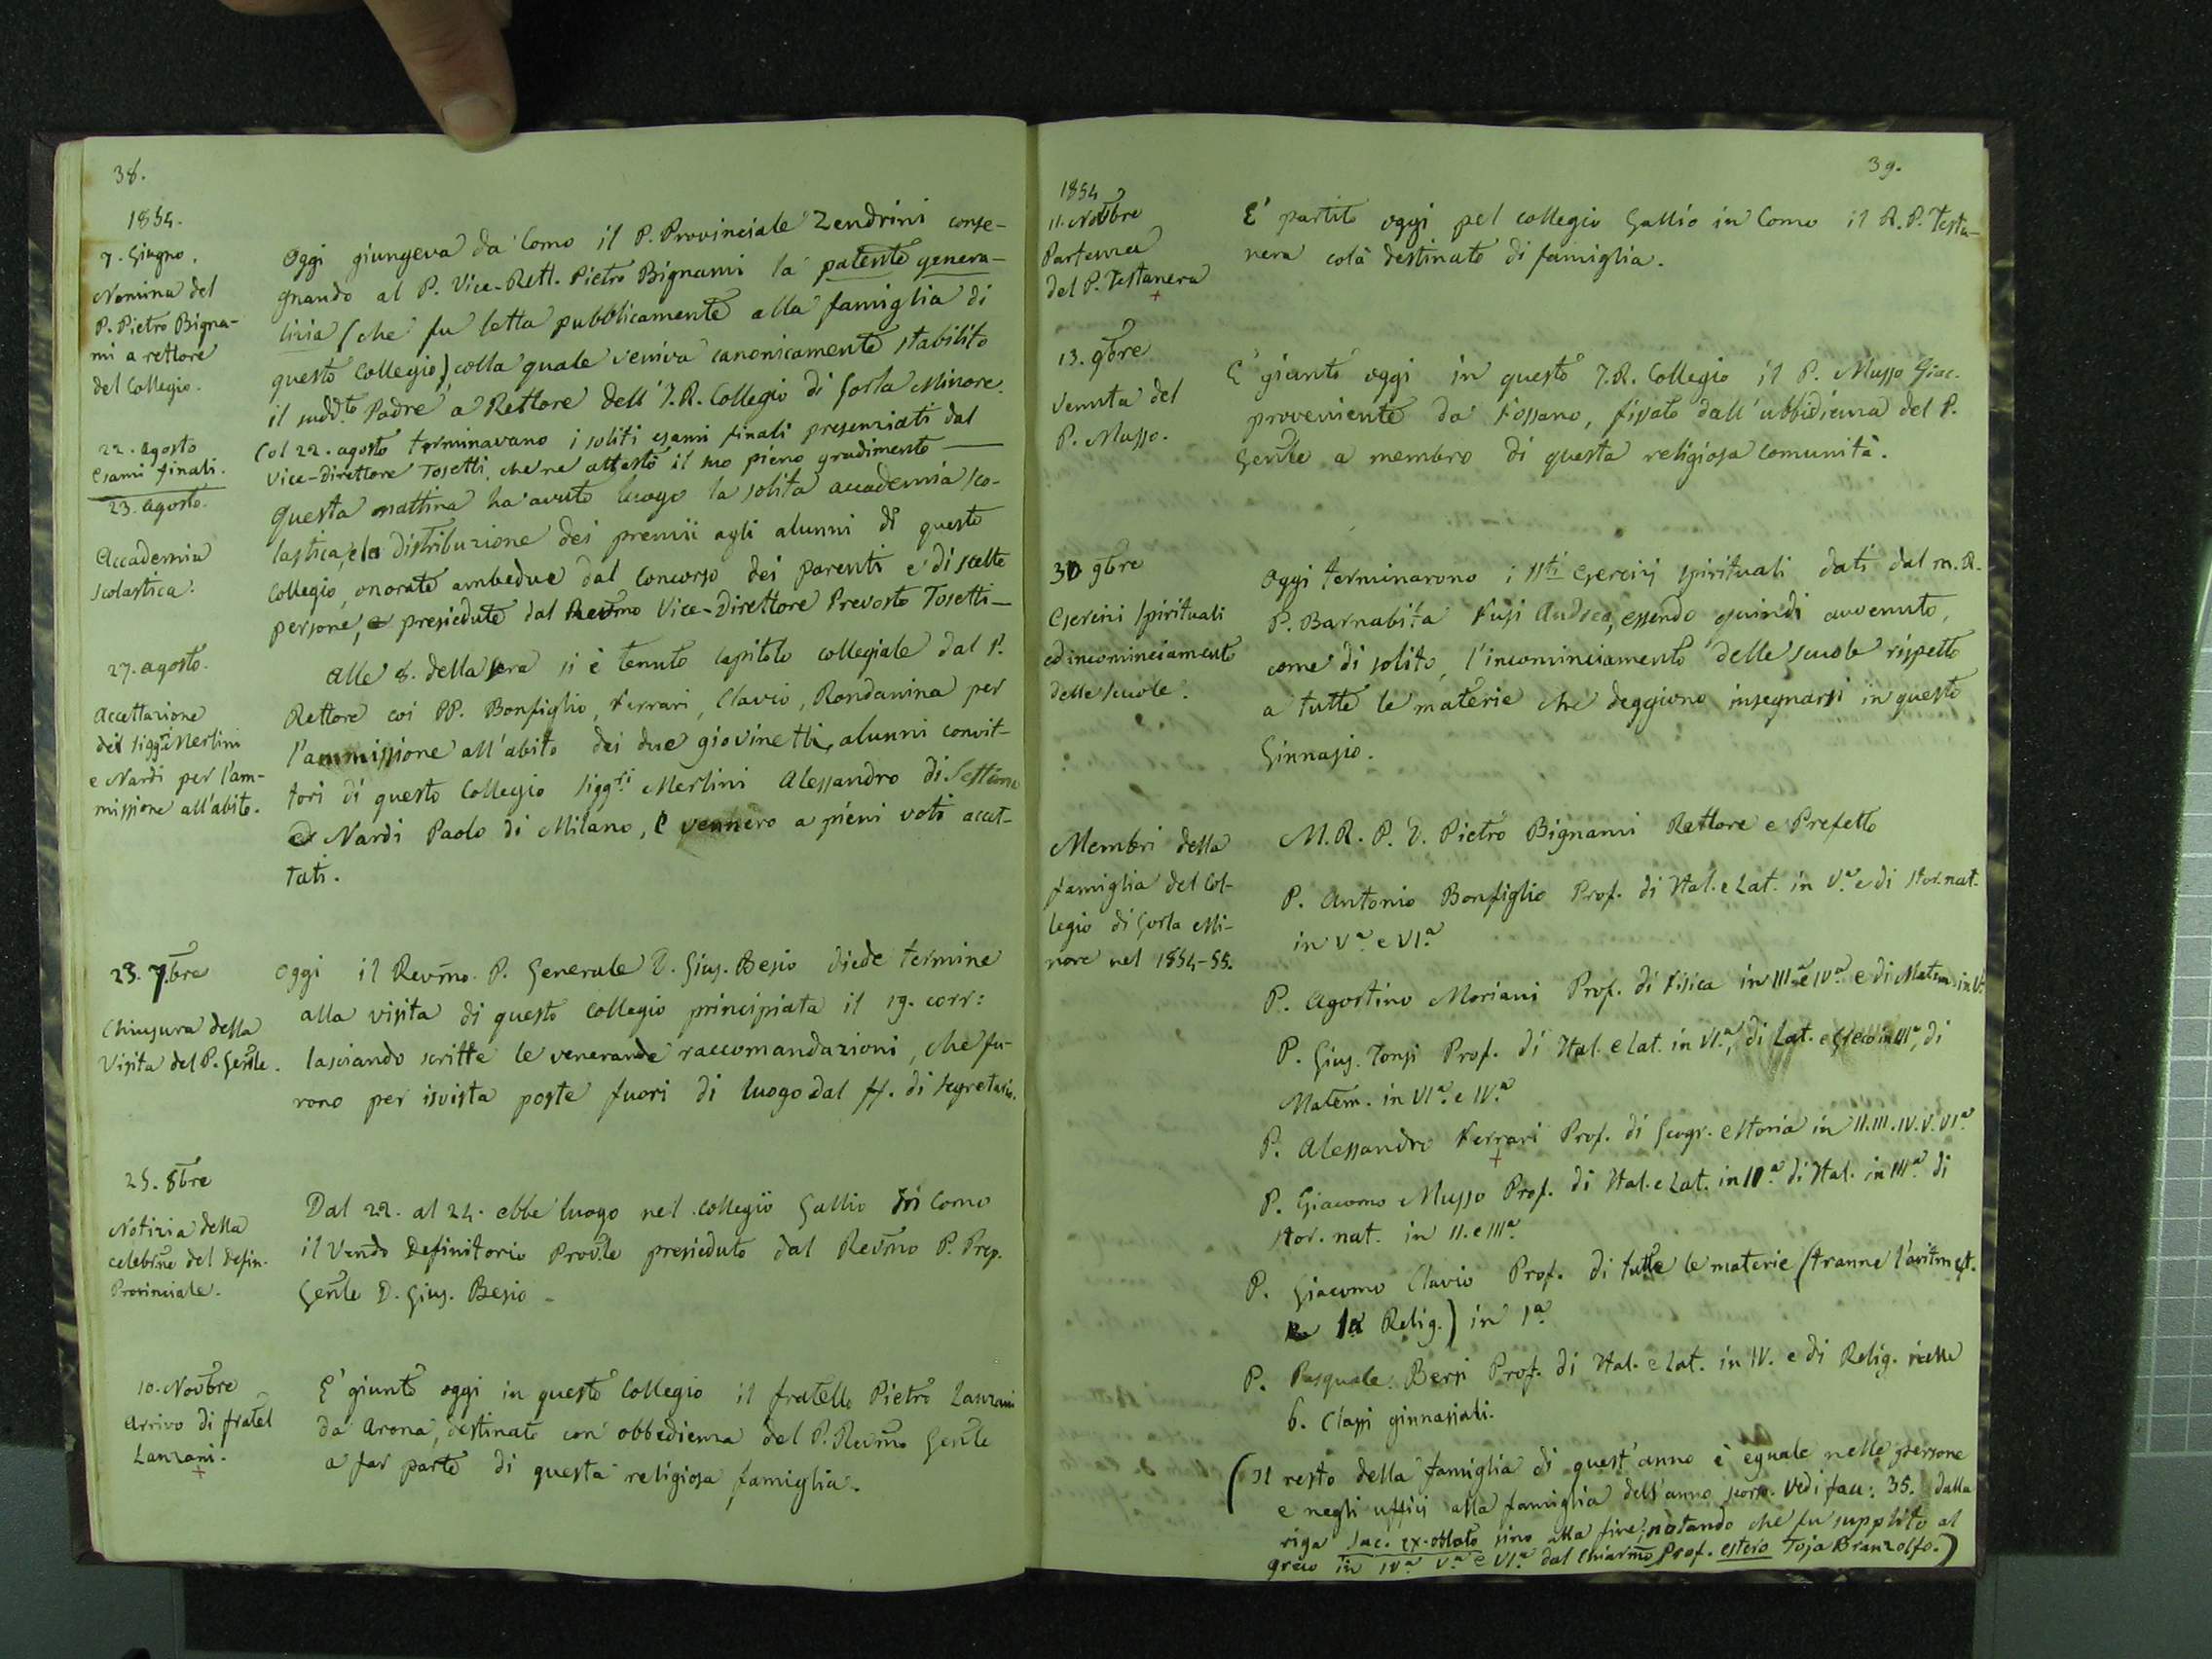 38.
1854.
7. Giugno.
Nomina del
P. Pietro Bigna-
mi a rettore
del Collegio.
Oggi giungeva da Como il P. Provinciale Zendrini conse-
gnando al P. Vice-Rett. Pietro Bignami la patente genera-
lizia (che fu letta pubblicamente alla famiglia di
questo Collegio) colla quale veniva canonicamente stabilito
il sudd.to Padre a Rettore dell' I. R. Collegio di Gorla Minore.
22. Agosto
Esami finali.
Col 22. agosto terminavano i soliti esami finali presenziati dal
Vice-Direttore Tosetti, che ne attestò il suo pieno gradimento —
23. agosto.
Accademia
scolastica.
Questa mattina ha avuto luogo la solita accademia sco-
lastica, e la distribuzione dei premii agli alunni di questo
Collegio, onorate ambedue dal concorso dei parenti e di scelte
persone, e presiedute dal Revmo Vice-Direttore Prevosto Tosetti—
27. agosto.
Accettazione
dei Sigg.ri Merlini
e Nardi per l'am-
missione all'abito.
Alle 8. della sera si è tenuto Capitolo collegiale dal P.
Rettore coi PP. Bonfiglio, Ferrari, Clavio, Rondanina per
l'ammissione all'abito dei due giovinetti, alunni convit-
tori di questo Collegio Sigg.ri Merlini Alessandro di Settimo
e Nardi Paolo di Milano, e vennero a pieni voti accet-
tati.
23. 7bre
Chiusura della
Visita del P. Gerãle.
Oggi il Revm̃o. P. Generale D. Gius. Besio diede termine
alla visita di questo Collegio principiata il 19. corr:
lasciando scritte le venerande raccomandazioni, che fu-
rono per isvista poste fuori di luogo dal ff. di segretario.
25. 8bre
Notizia della
celebrne del Defin.
Provinciale.
Dal 22. al 24. ebbe luogo nel collegio Gallio di Como
il Vendo Definitorio Provle presieduto dal Revmo P. Prep.
Genle D. Gius. Besio -
10. Novbre
Arrivo di fratel
Lanzani.
E' giunto oggi in questo Collegio il fratello Pietro Lanzani
da Arona, destinato con obbedienza del P. Revmo Genle
a far parte di questa religiosa famiglia.
39.
1854
11. Novbre
Partenza
del P. Testanera
E' partito oggi pel collegio Gallio in Como il R. P. Testa-
nera colà destinato di famiglia.
13. 9bre
Venuta del
P. Musso.
E' giunto oggi in questo I. R. Collegio il P. Musso Giac.
proveniente da Fossano, fissato dall'ubbidienza del P.
Genle a membro di questa religiosa comunità.
30 9bre
Esercizi spirituali
ed incominciamento
delle scuole.
Oggi terminarono i SSti Esercizj spirituali dati dal M. R.
P. Barnabita Fusi Andrea, essendo quindi avvenuto,
come di solito, l'incominciamento delle scuole rispetto
a tutte le materie che deggiono insegnarsi in questo
Ginnasio.
Membri della
famiglia del Col-
legio di Gorla Mi-
nore nel 1854-55.
M. R. P. D. Pietro Bignami Rettore e Prefetto
P. Antonio Bonfiglio Prof. di Ital. e Lat. in V.a e di stor. nat.
in V.a e VI.a
P. Agostino Moriani Prof. di Fisica in III.a e IV.a e di Matem. in V.a
P. Gius. Tonsi Prof. di Ital. e Lat. in VI.a, di Lat. e Greco in III.a, di
Matem. in VI.a e IV.a
P. Alessandro Ferrari Prof. di Geogr. e storia in II. III. IV. V. VI.a
P. Giacomo Musso Prof. di Ital. e Lat. in II.a di Ital. in III.a di
stor. nat. in II. e III.a
P. Giacomo Clavio Prof. di tutte le materie (tranne l'aritmet.
e la Relig.) in I.a
P. Pasquale Bersi Prof. di Ital. e Lat. in IV. e di Relig. nelle
6. Classi ginnasiali.
(Il resto della famiglia di quest'anno è eguale nelle persone
e negli ufficj alla famiglia dell'anno scorso. Vedi facc: 35. dalla
riga Sac. ex-oblato sino alla fine; notando che fu supplito al
greco in IV.a V.a e VI.a dal chiarmo Prof. estero Toja Branzolfo.)